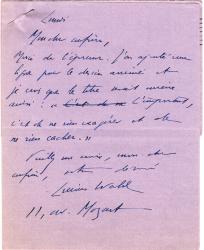 Lundi
Mon cher confrère,
Merci de l'épreuve. J'ai ajouté une
ligne pour le dessin annexé et
je crois que le titre irait mieux
ainsi : « L'important,
c'est de ne rien exagérer et de
ne rien cacher. »
Veuillez me croire, mon cher
confrère, votre dévoué
Lucien Wahl
11, av. Mozart